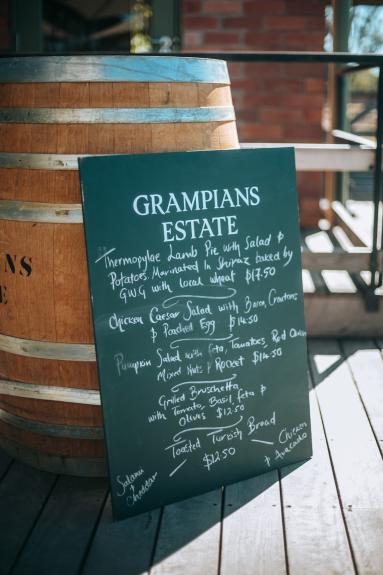 GRAMPIANS
ESTATE
Thermopylae Lamb Pie with Salad &
Potatoes. Marinated In Shiraz baked by
GWG with local wheat $17.50
Chicken Caesar Salad with Bacon, Croutons
& Poached Egg $14.50
Pumpkin Salad with feta, Tomatoes, Red Onion
Mixed Nuts & Rocket $14.50
Grilled Bruschetta
with Tomato, Basil, feta &
Olives $12.50
Toasted Turkish Bread
$12.50
Salami
& Cheddar
Chicken
& Avocado
NS
E